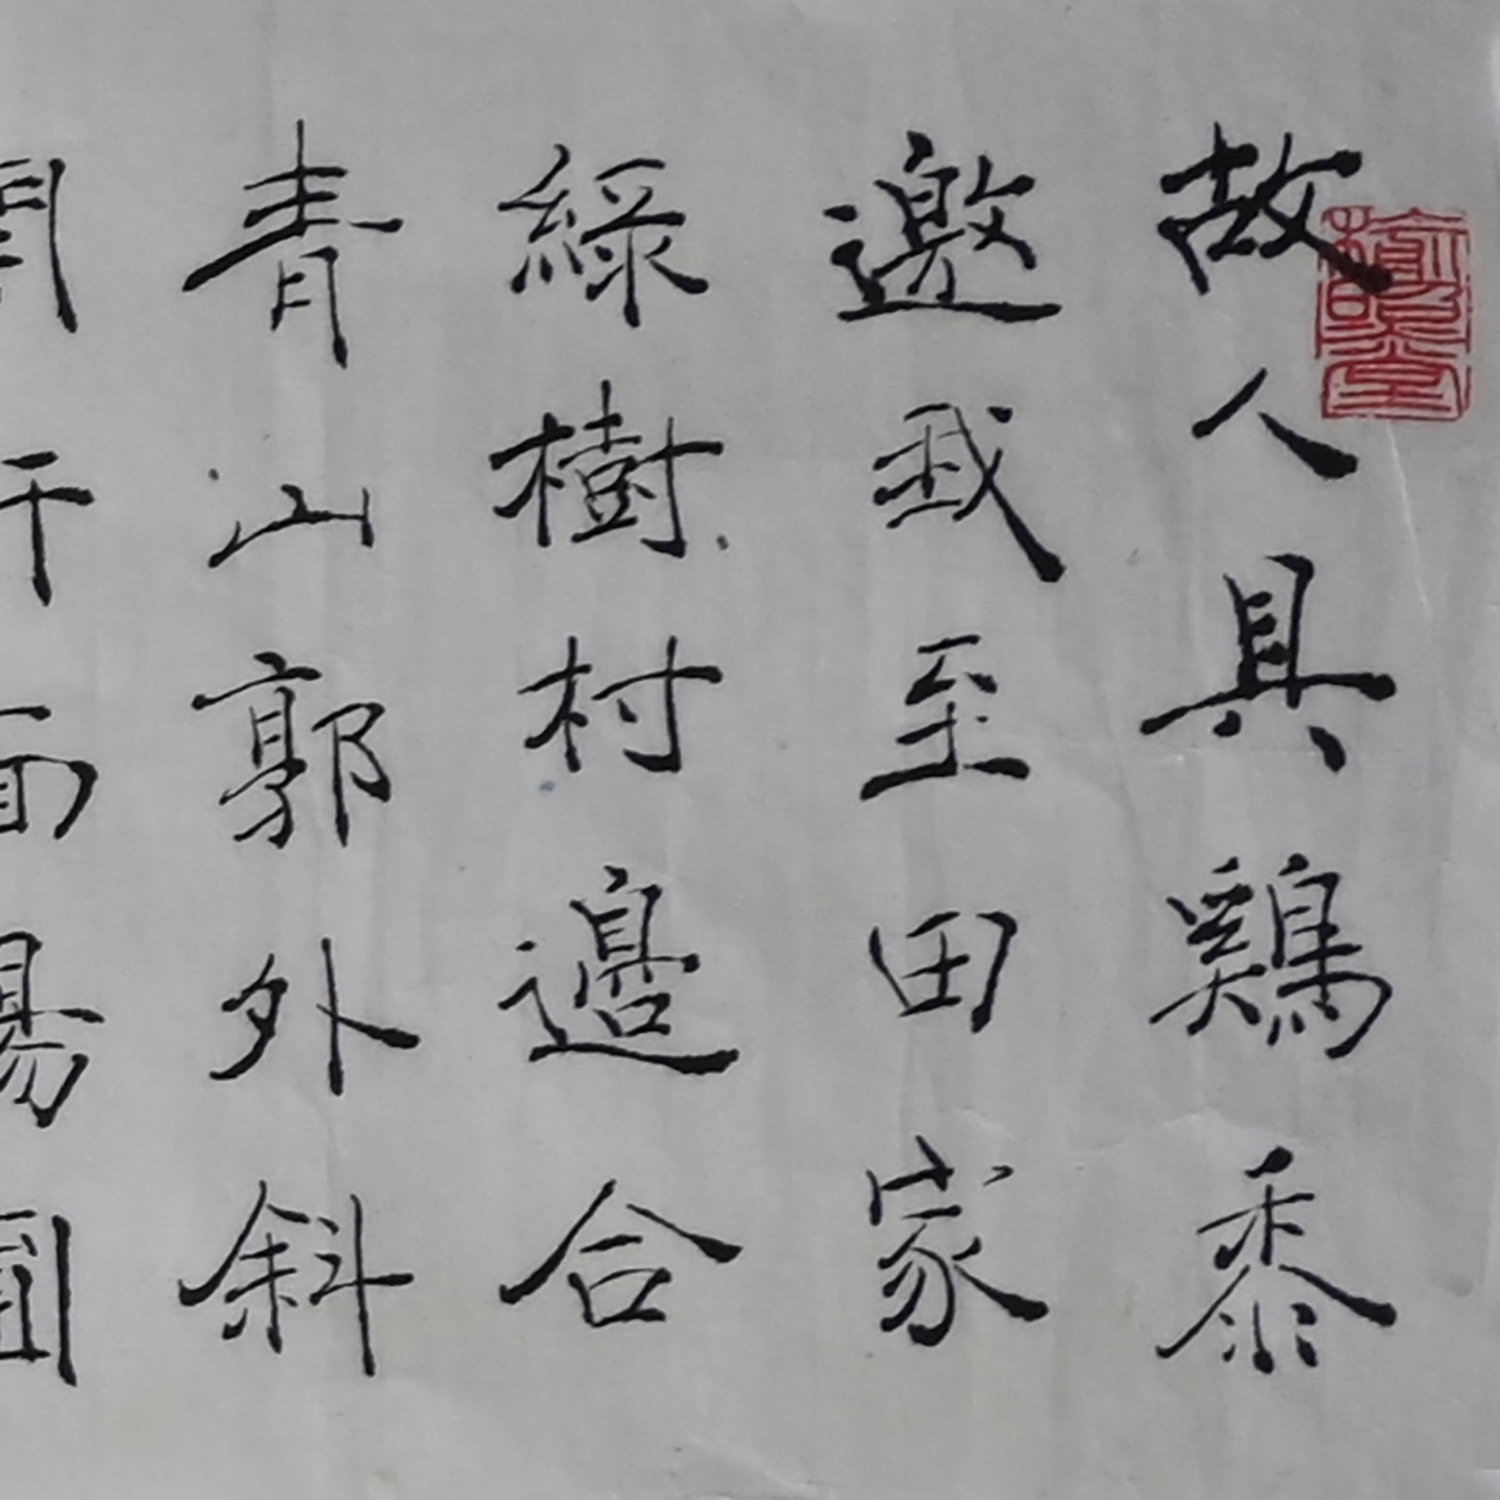 故人具鷄黍
邀我至田家
綠樹村邊合
青山郭外斜
開軒面場圃